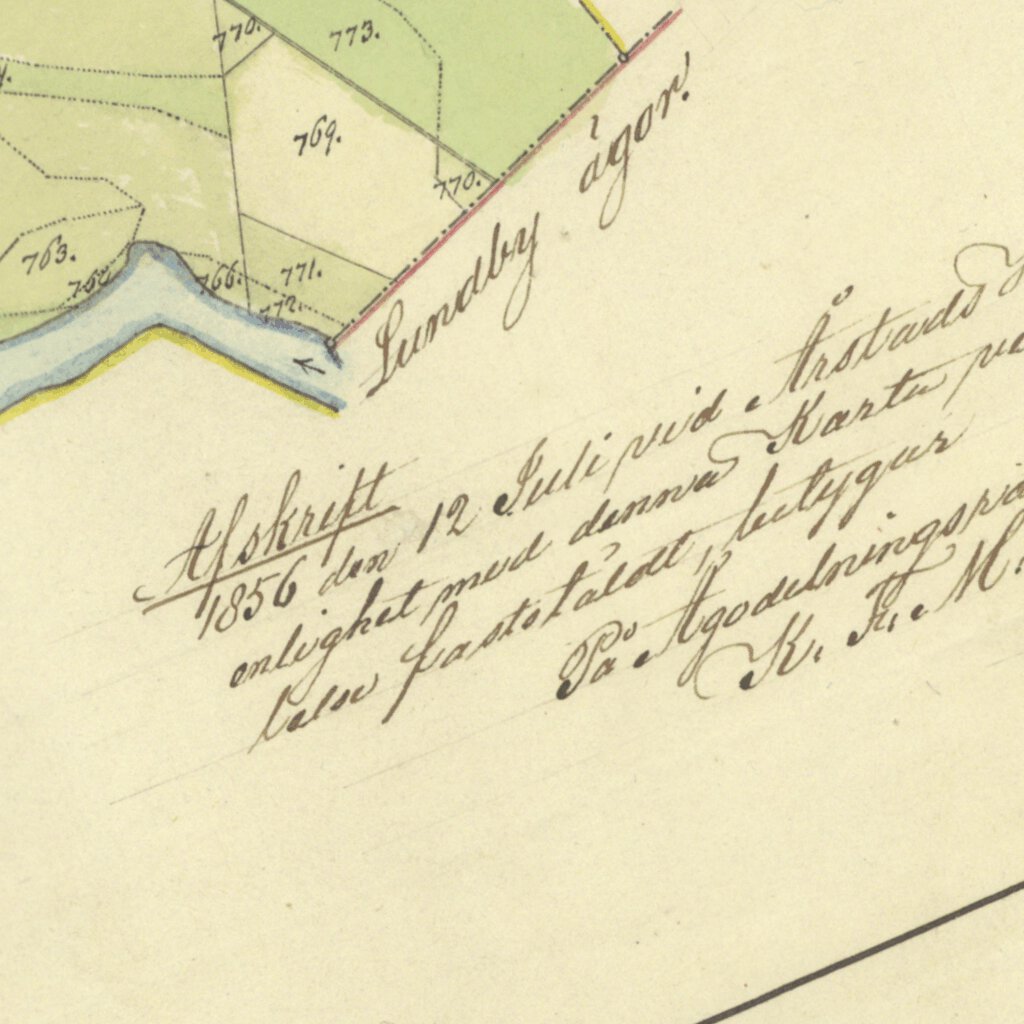 770.
773.
769.
770.
763.
766.
771.
772.
Lundby ägor.
Afskrift
1856 den 12 Juli vid Årstads
enlighet med denna Karta
telse faststäldt, betygar
På Ägodelningsrä
K. F. M.